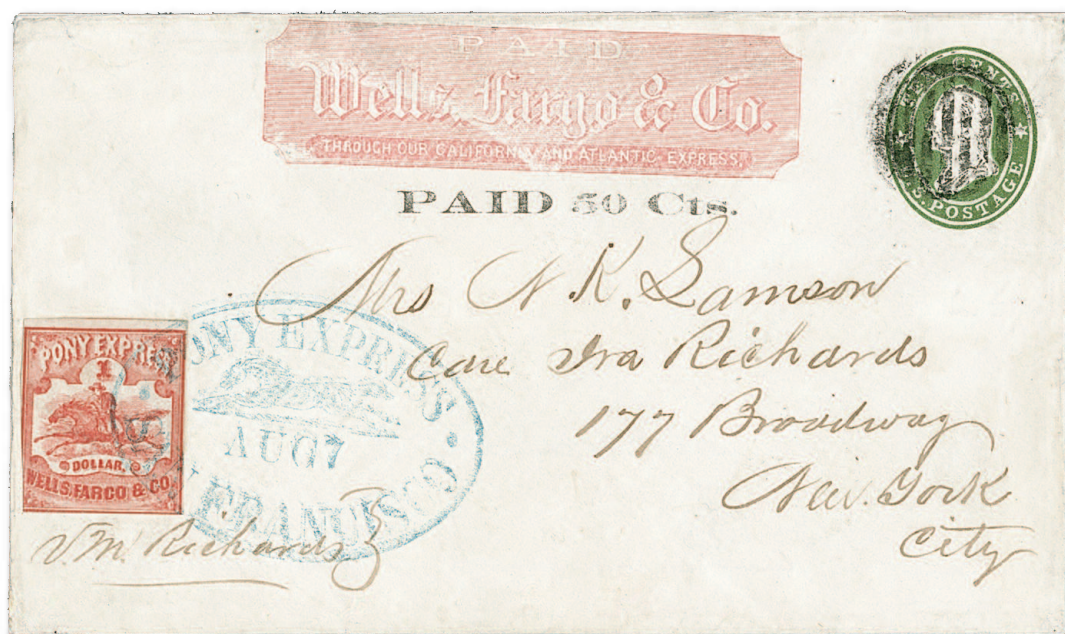 PAID
Wells, Fargo & Co.
THROUGH OUR CALIFORNIA AND ATLANTIC EXPRESS.
CENTS
U.S. POSTAGE
PAID 50 Cts.
Mrs N. K. Lamson
Care Ira Richards
177 Broadway
New York
City
PONY EXPRESS
AUG 7
SAN FRANCISCO
PONY EXPRESS
1
DOLLAR.
WELLS, FARGO & CO
Richards